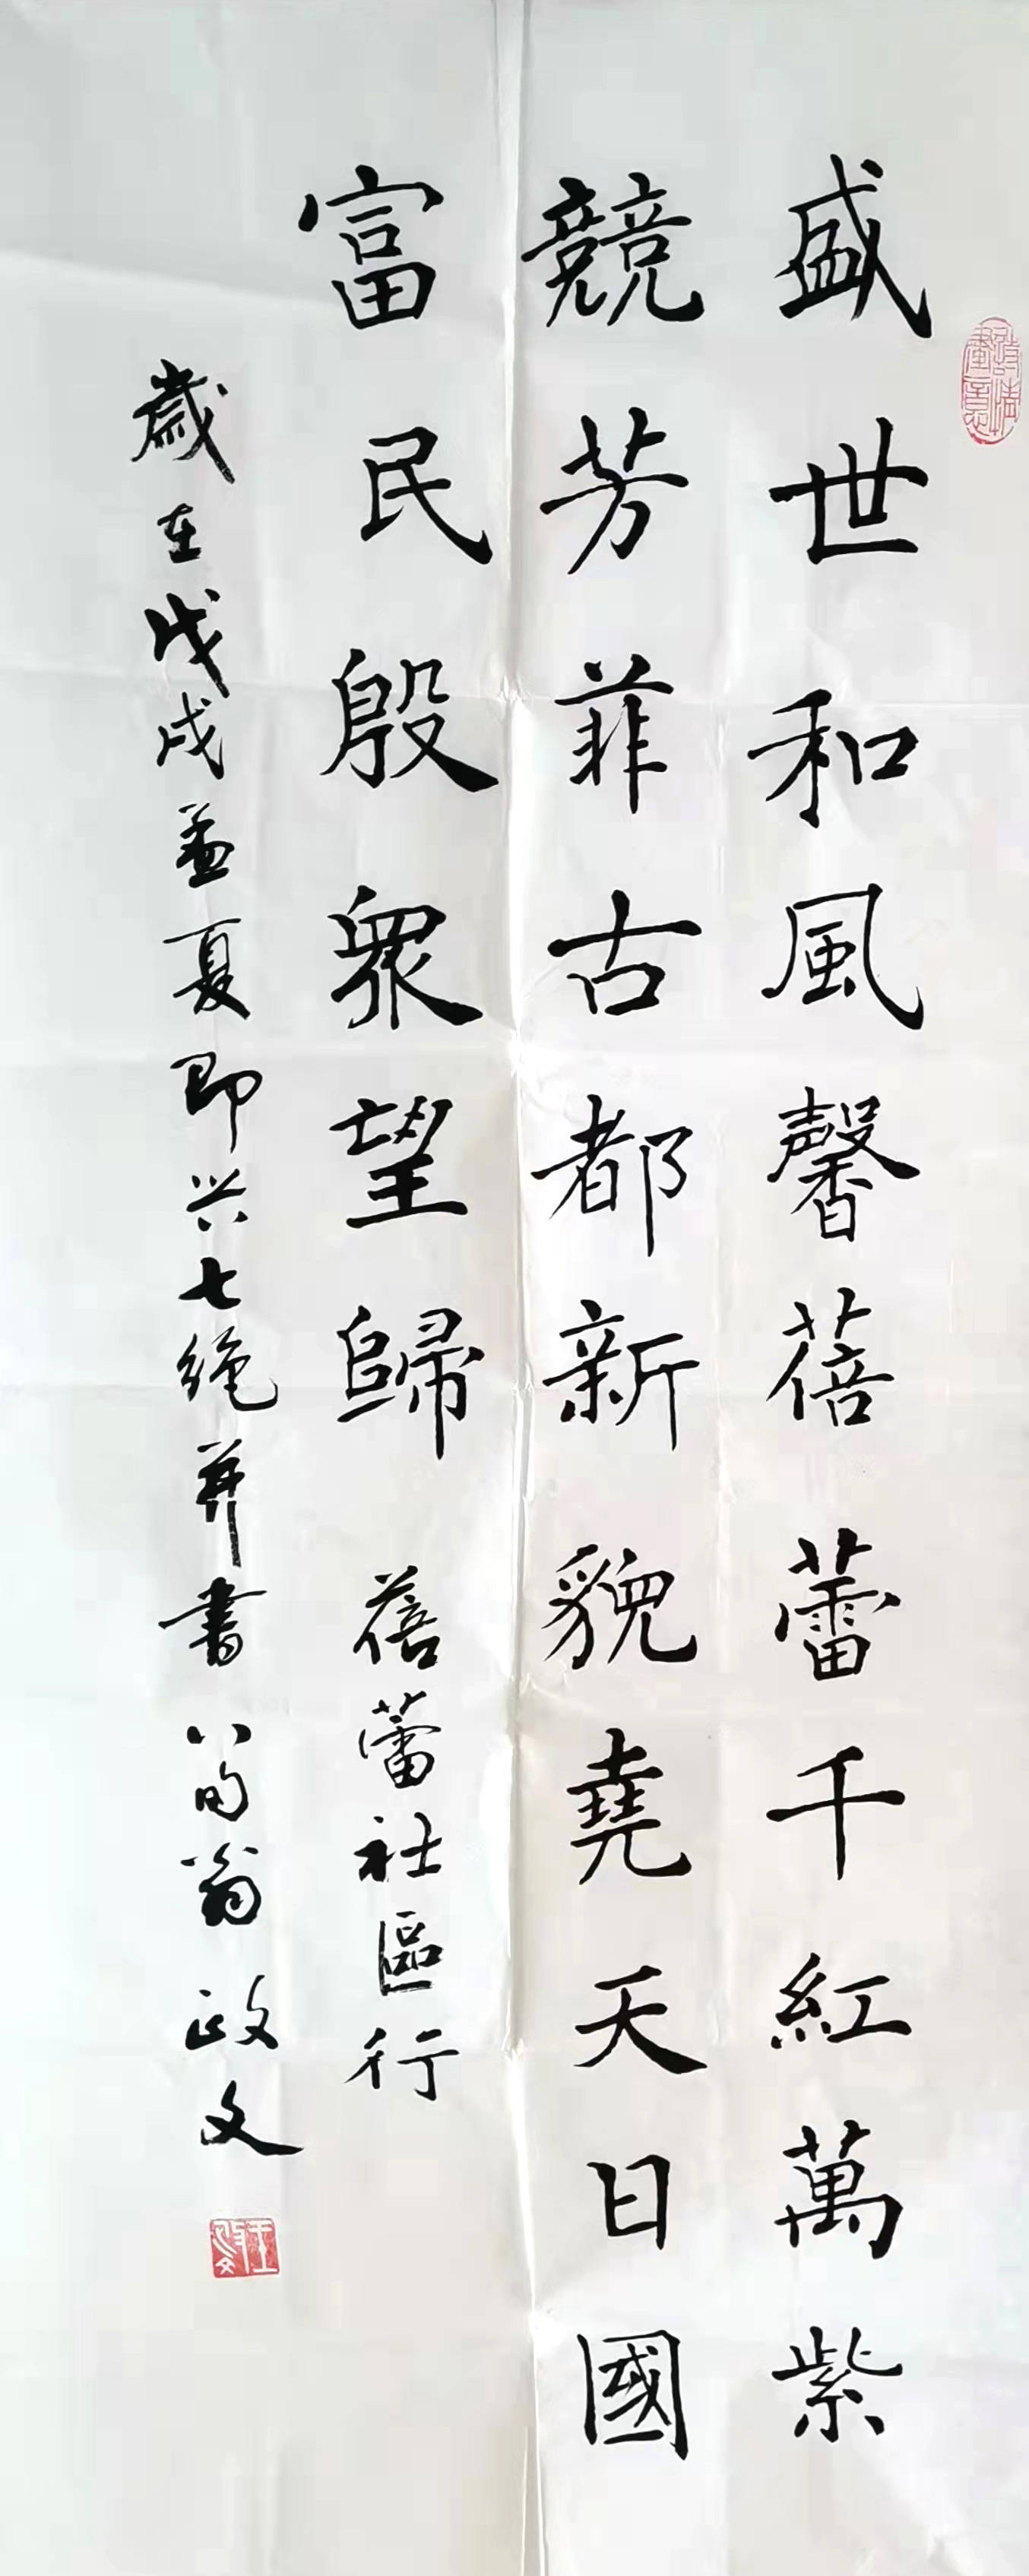 盛世和風馨蓓蕾千紅萬紫
競芳菲古都新貌堯天日國
富民殷眾望歸 蓓蕾社區行
歲在戊戌孟夏即兴七绝并書 八旬翁 政文